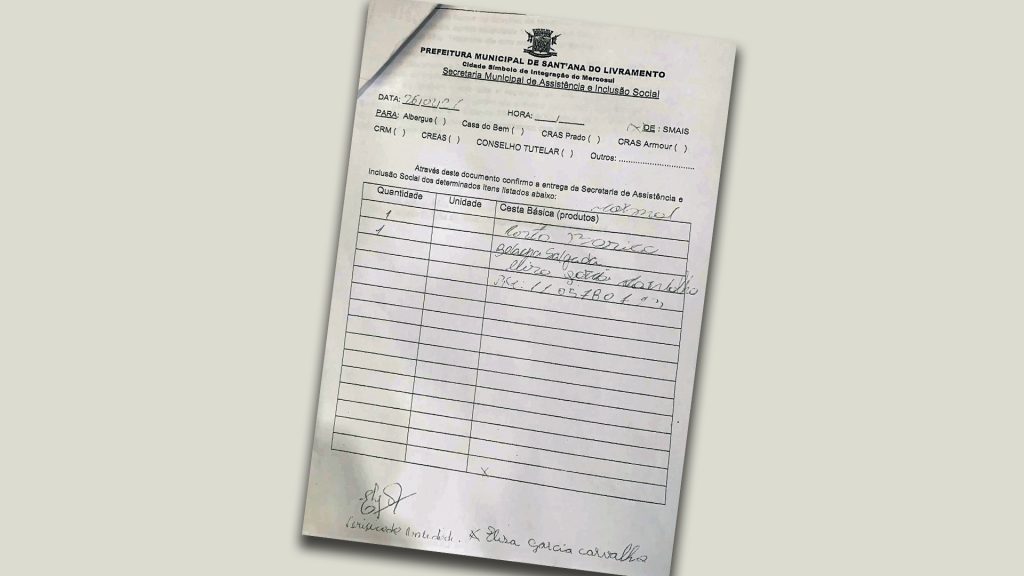 PREFEITURA MUNICIPAL DE SANT'ANA DO LIVRAMENTO
Cidade Símbolo de Integração do Mercosul
Secretaria Municipal de Assistência e Inclusão Social
DATA: HORA: ___/______ DE : SMAIS
PARA: Albergue ( ) Casa do Bem ( ) CRAS Prado ( ) CRAS Armour ( )
CRM ( ) CREAS ( ) CONSELHO TUTELAR ( ) Outros: ............................
Através deste documento confirmo a entrega da Secretaria de Assistência e
Inclusão Social dos determinados itens listados abaixo: normal
Quantidade Unidade Cesta Básica (produtos)
1
1 Bolacha Salgada
x
x Elisa Garcia Carvalho